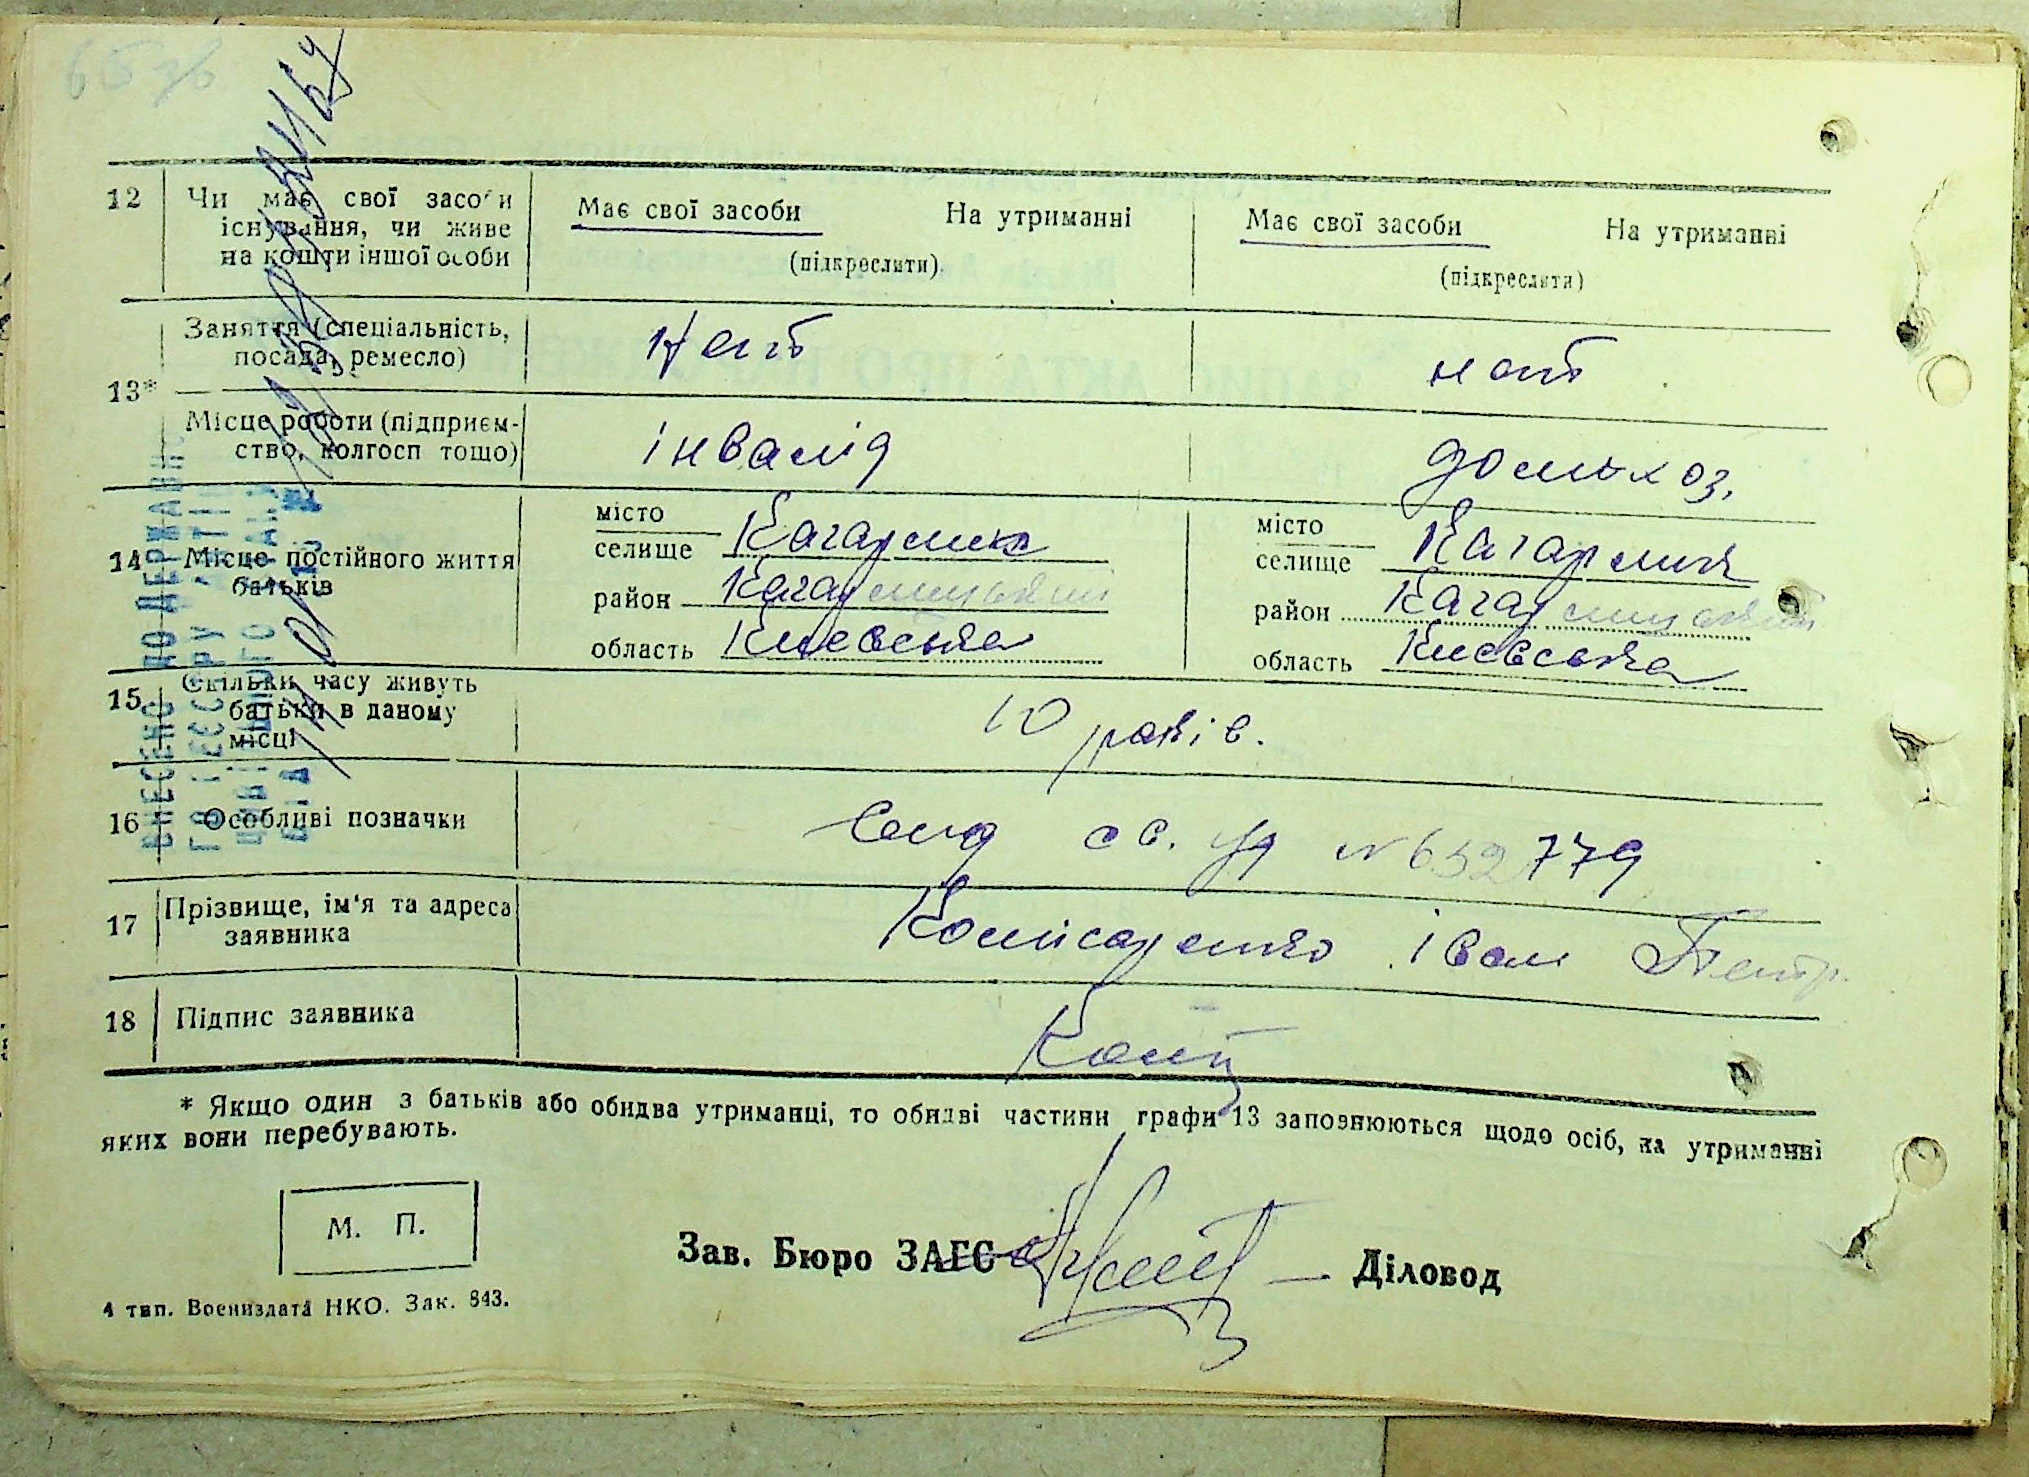 65 зв
12 Чи має свої засоби існування, чи живе на кошти іншої особи
Має свої засоби На утриманні
(підкреслити)
Має свої засоби На утриманні
(підкреслити)
13*
Заняття (спеціальність, посада, ремесло)
нет
нет
Місце роботи (підприємство, колгосп тощо)
інвалід
домохоз.
14 Місце постійного життя батьків
місто
селище Кагарлик
район Кагарлицький
область Києвська
місто
селище Кагарлик
район Кагарлицький
область Києвська
15 Скільки часу живуть батьки в даному місці
10 років.
16 Особливі позначки
св. № 652779
17 Прізвище, ім'я та адреса заявника
Комісаренко Іван Петр.
18 Підпис заявника
* Якщо один з батьків або обидва утриманці, то обидві частини графи 13 заповнюються щодо осіб, на утриманні
яких вони перебувають.
М. П.
Зав. Бюро ЗАГС
Діловод
4 тип. Воениздата НКО. Зак. 843.
ВНЕСЕНО ДО ДЕРЖАВНОГО
РЕЄСТРУ АКТІВ
ЦИВІЛЬНОГО СТАНУ